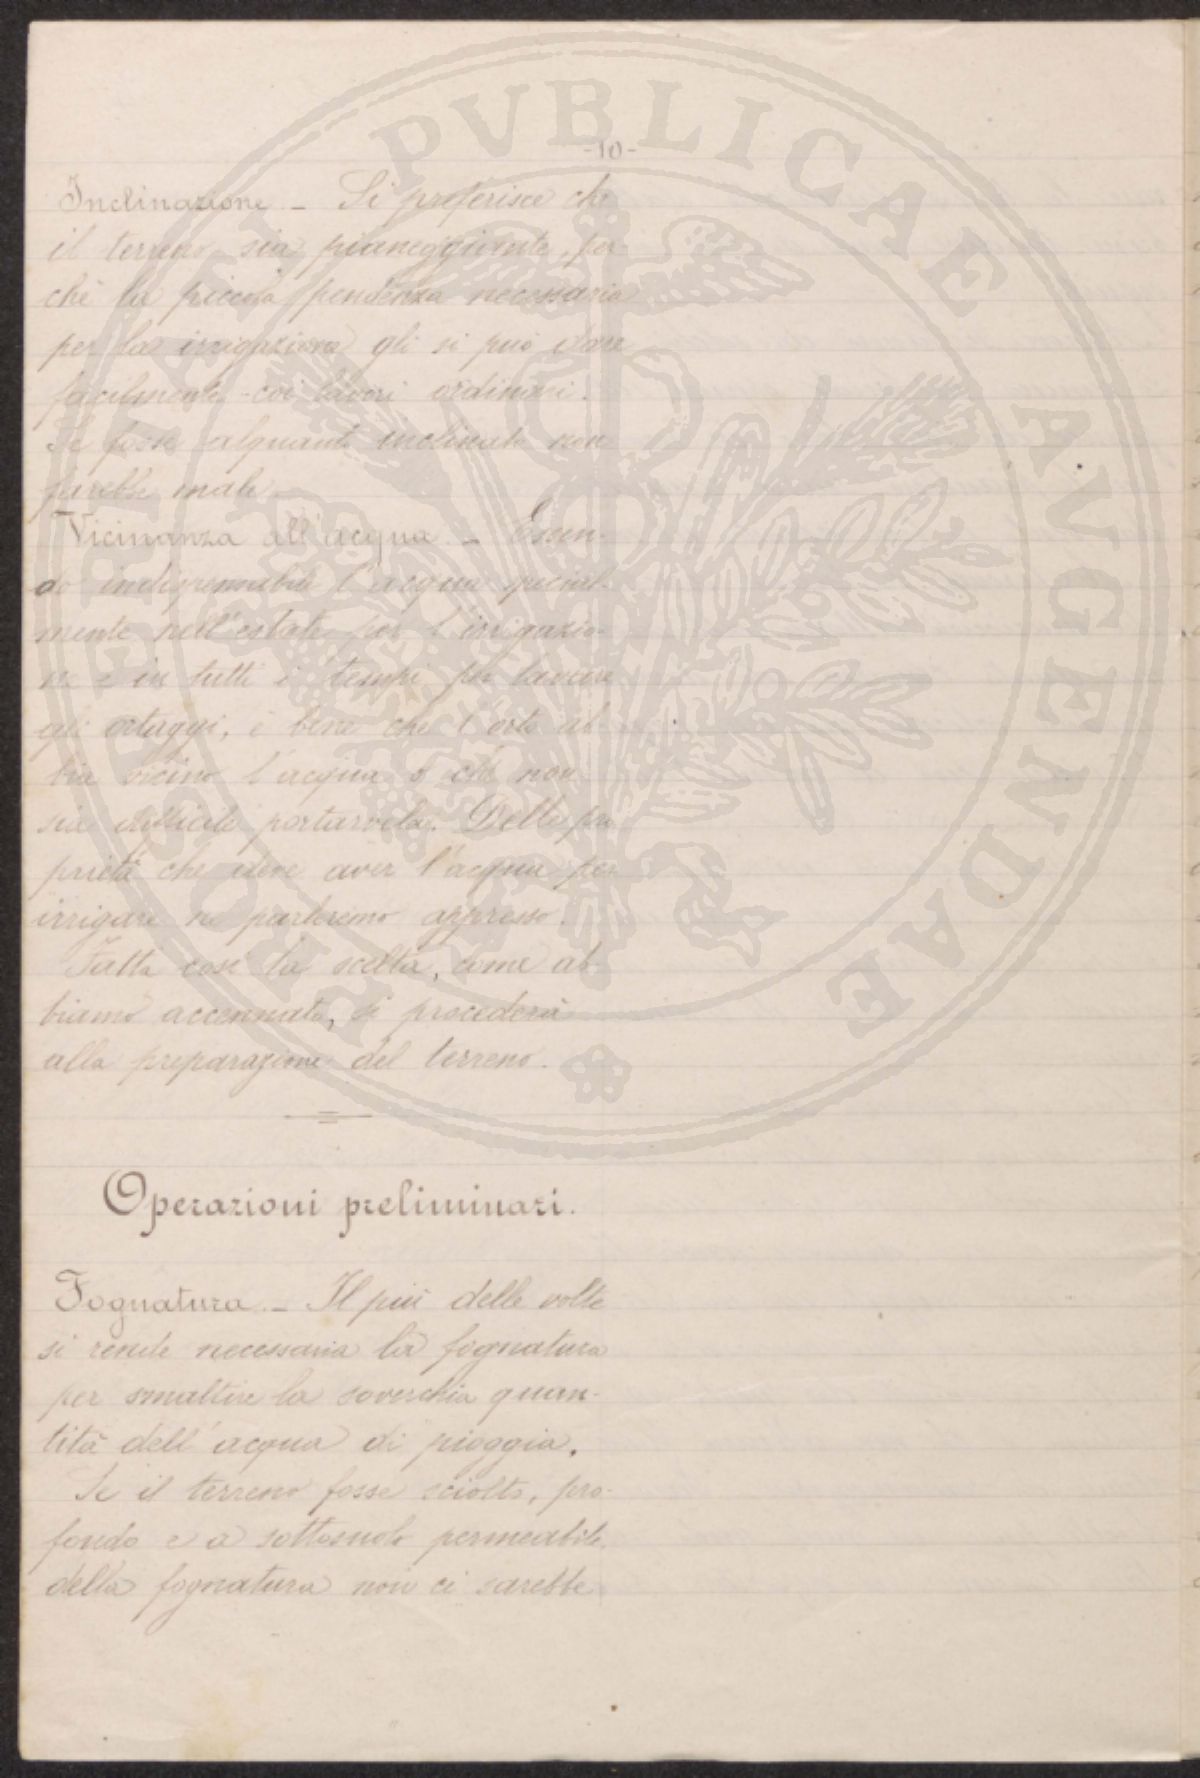 -10-
Inclinazione. - Si preferisce che
il terreno sia pianeggiante, per-
chè la piccola pendenza necessaria
per la irrigazione gli si può dare
facilmente coi lavori ordinari.
Se fosse alquanto inclinato non
farebbe male.
Vicinanza all'acqua. - Essen-
do indispensabile l'acqua special-
mente nell'estate per l'irrigazio-
ne e in tutti i tempi per lavare
gli ortaggi, è bene che l'orto ab-
bia vicino l'acqua o che non
sia difficile portarvela. Delle pro
prietà che deve aver l'acqua per
irrigare ne parleremo appresso.
Fatta così la scelta, come ab-
biamo accennato, si procederà
alla preparazione del terreno.
Operazioni preliminari.
Fognatura. - Il più delle volte
si rende necessaria la fognatura
per smaltire la soverchia quan-
tità dell'acqua di pioggia.
Se il terreno fosse sciolto, pro-
fondo e a sottosuolo permeabile
della fognatura non ci sarebbe
PVBLICAE AVGENDAE